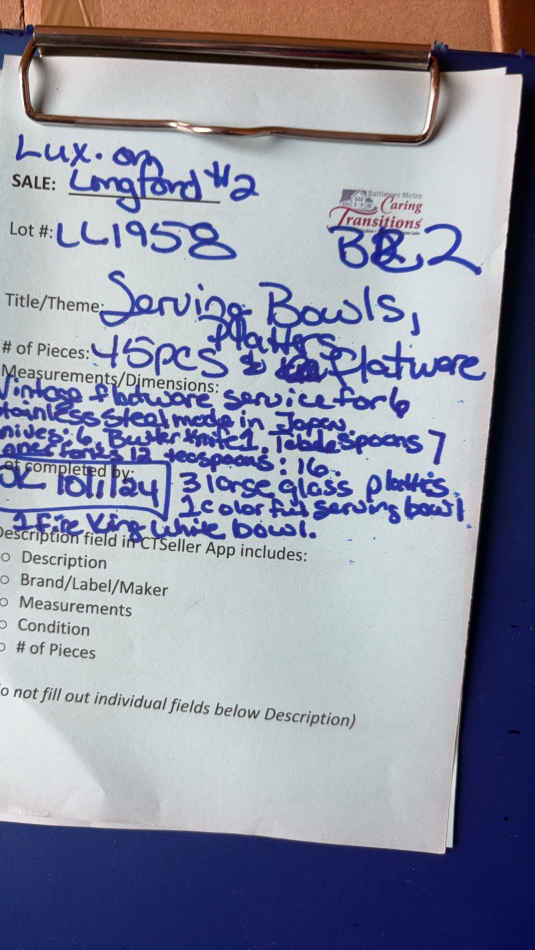 Lux. on
SALE: Longford #2
Baltimore Metro
Caring
Transitions
Lot #: LL1958
B 2
Title/Theme: Serving Bowls,
Platters
# of Pieces: 45pcs & Flatware
Measurements/Dimensions:
Vintage flatware service for 6
stainless steel made in Japan.
nives: 6, Butter knife 1, Tablespoons 7
forks 12 teaspoons: 16.
completed by:
10/1/24 3 large glass platters.
1 colorful serving bowl
1 fire King white bowl.
Description field in CTSeller App includes:
o Description
o Brand/Label/Maker
o Measurements
o Condition
o # of Pieces
o not fill out individual fields below Description)